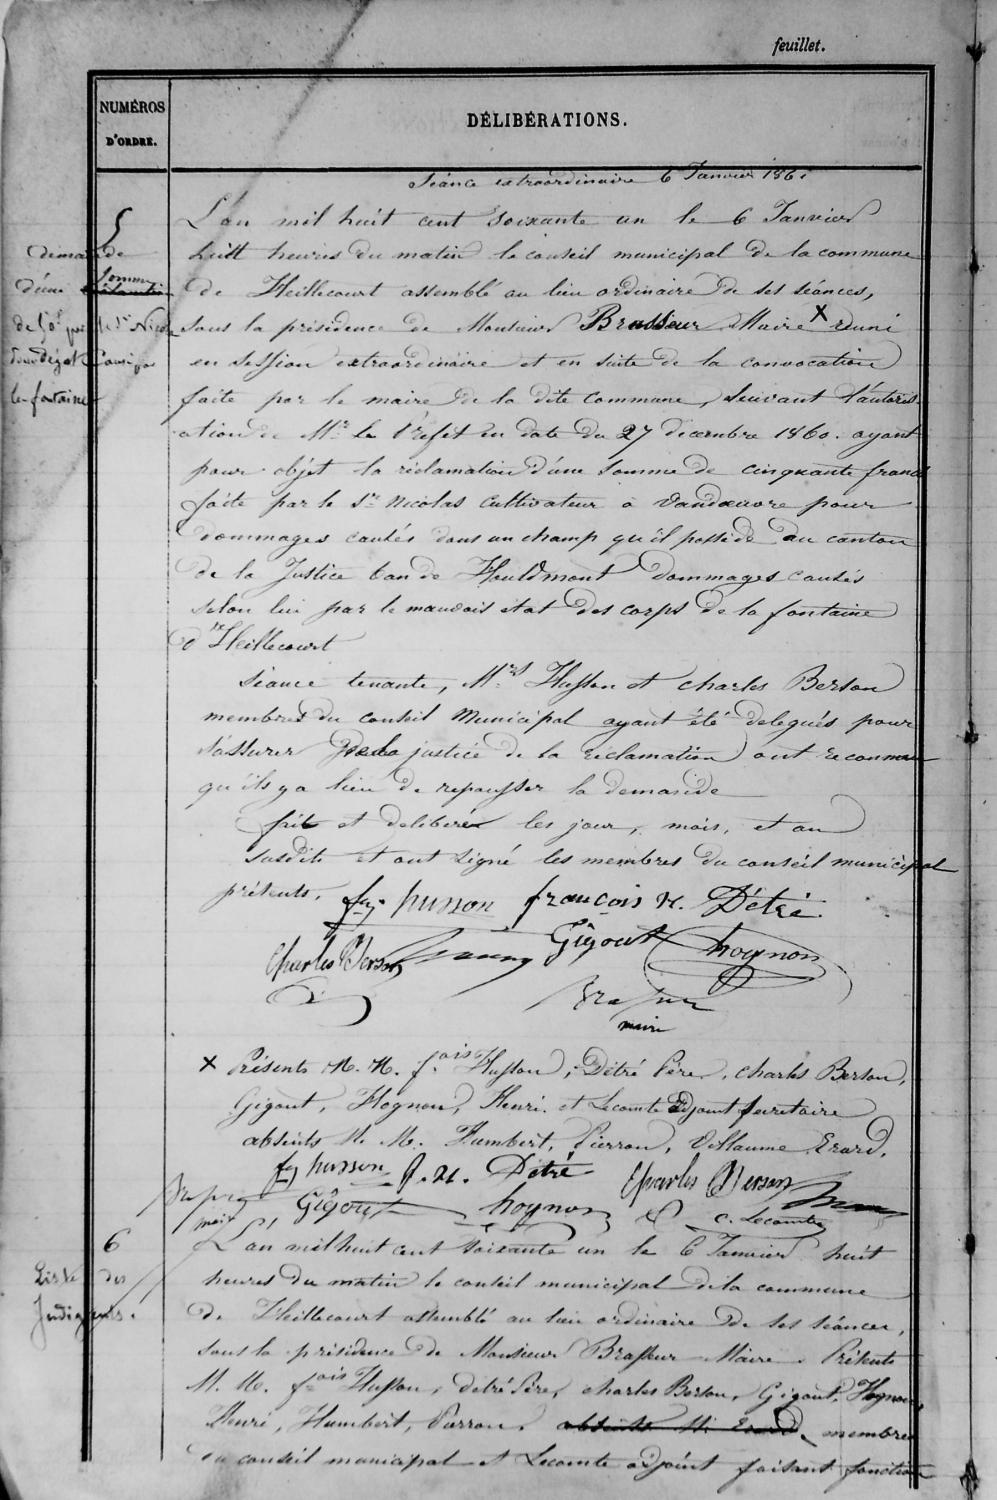 feuillet.
NUMÉROS
D'ORDRE.
DÉLIBÉRATIONS.
Séance extraordinaire 6 Janvier 1861
5
demande
d'une somme
de 50f par le Sr Nicolas
pour dégat causé par
la fontaine
L'an mil huit cent soixante un le 6 Janvier
huit heures du matin le conseil municipal de la commune
de Heillecourt assemblé au lieu ordinaire de ses séances,
sous la présidence de Monsieur Brasseur Maire X réuni
en session extraordinaire et en suite de la convocation
faite par le maire de la dite commune, suivant l'autoris-
ation de Mr le Préfet en date du 27 décembre 1860. ayant
pour objet la réclamation d'une somme de cinquante francs
faite par le Sr Nicolas cultivateur à Vandœuvre pour
dommages causés dans un champ qu'il possède au canton
de la Justice ban de Houdmont dommages causés
selon lui par le mauvais état des corps de la fontaine
d'Heillecourt
Séance tenante, Mrs Husson et charles Berson
membres du conseil Municipal ayant été délegués pour
s'assurer de la justice de la réclamation ont reconnu
qu'ils y a lieu de repousser la demande
fait et deliberé les jour, mois, et an
susdits et ont signé les membres du conseil municipal
présents.
fs husson françois N. Détré
Charles Berson Gigout hognon
Brasseur
maire
X Présents M. M. fois Husson, Détré Père, charles Berson,
Gigout, Hognon, Henri. et Lecomte adjoint secretaire
absents M. M. Humbert, Pierron, Villaume Erard.
fs husson f. N. Détré Charles Berson
Gigout hognon C. Lecomte
maire
6
Liste des
Indigents.
L'an mil huit cent soixante un le 6 Janvier huit
heures du matin le conseil municipal de la commune
de Heillecourt assemblé au lieu ordinaire de ses séances,
sous la présidence de Monsieur Brasseur Maire. Présents
M. M. fois Husson, detré Père, charles Berson, Gigout, Hognon,
Henri, Humbert, Pierron, absents M. Erard membres
du conseil municipal et Lecomte adjoint faisant fonction